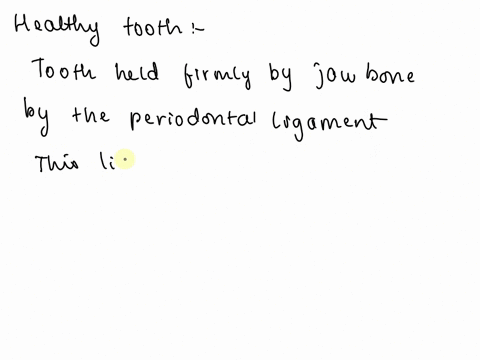 Healthy tooth :-
Tooth held firmly by jaw bone
by the periodontal ligament
This li